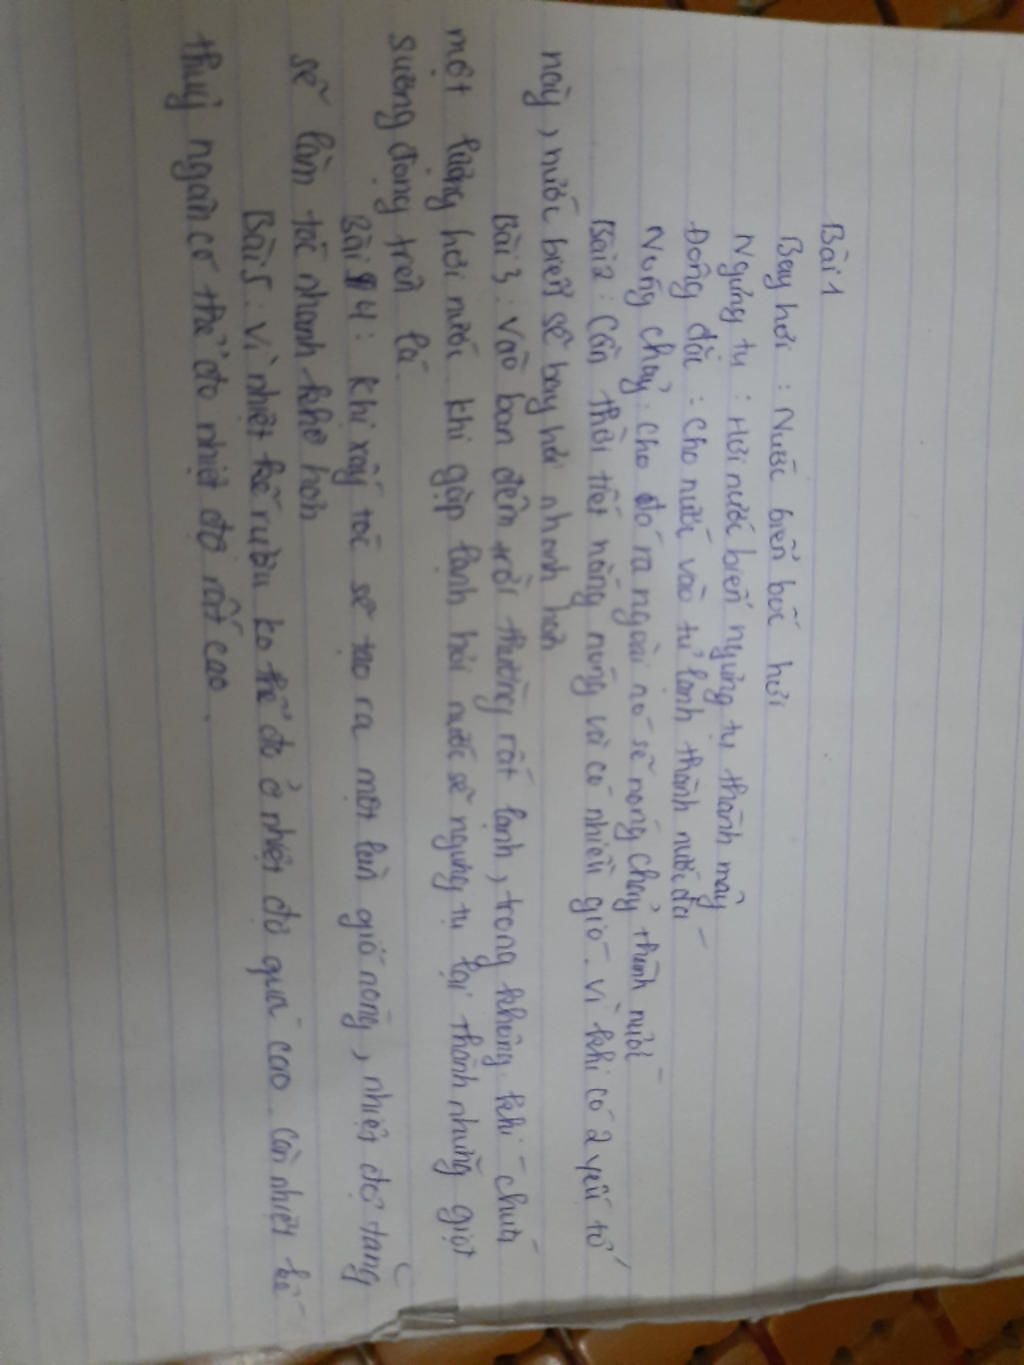 Bài 1
Bay hơi : Nước biển bốc hơi
Ngưng tụ : Hơi nước biển ngưng tụ thành mây
Đông đặc : Cho nước vào tủ lạnh thành nước đá
Nóng chảy : cho đá ra ngoài nó sẽ nóng chảy thành nước
Bài 2 : Cần thời tiết nắng nóng và có nhiều gió. Vì khi có 2 yếu tố
này, nước biển sẽ bay hơi nhanh hơn
Bài 3 : Vào ban đêm trời thường rất lạnh, trong không khí chứa
một lượng hơi nước khi gặp lạnh hơi nước sẽ ngưng tụ lại thành những giọt
sương đọng trên lá.
Bài 4 : Khi xấy tóc sẽ tạo ra một làn gió nóng, nhiệt độ tăng
sẽ làm tóc nhanh khô hơn
Bài 5 : Vì nhiệt kế rượu ko thể đo ở nhiệt độ quá cao. Còn nhiệt kế
thuỷ ngân có thể đo nhiệt độ rất cao.